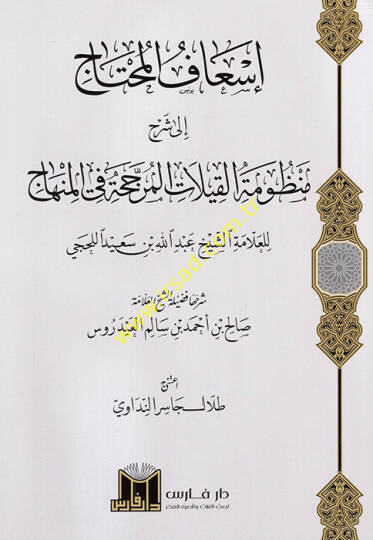 إسعاف المحتاج
إلى شرح
منظومة القيلات المرجحة في المنهاج
للعلامة الشيخ عبد الله بن سعيد اللحجي
شرحها فضيلة الشيخ العلامة
صالح بن أحمد بن سالم العيدروس
اعتنى
طلال جاسر النداوي
دار فارس
دار فارس
www.irsad.com.tr